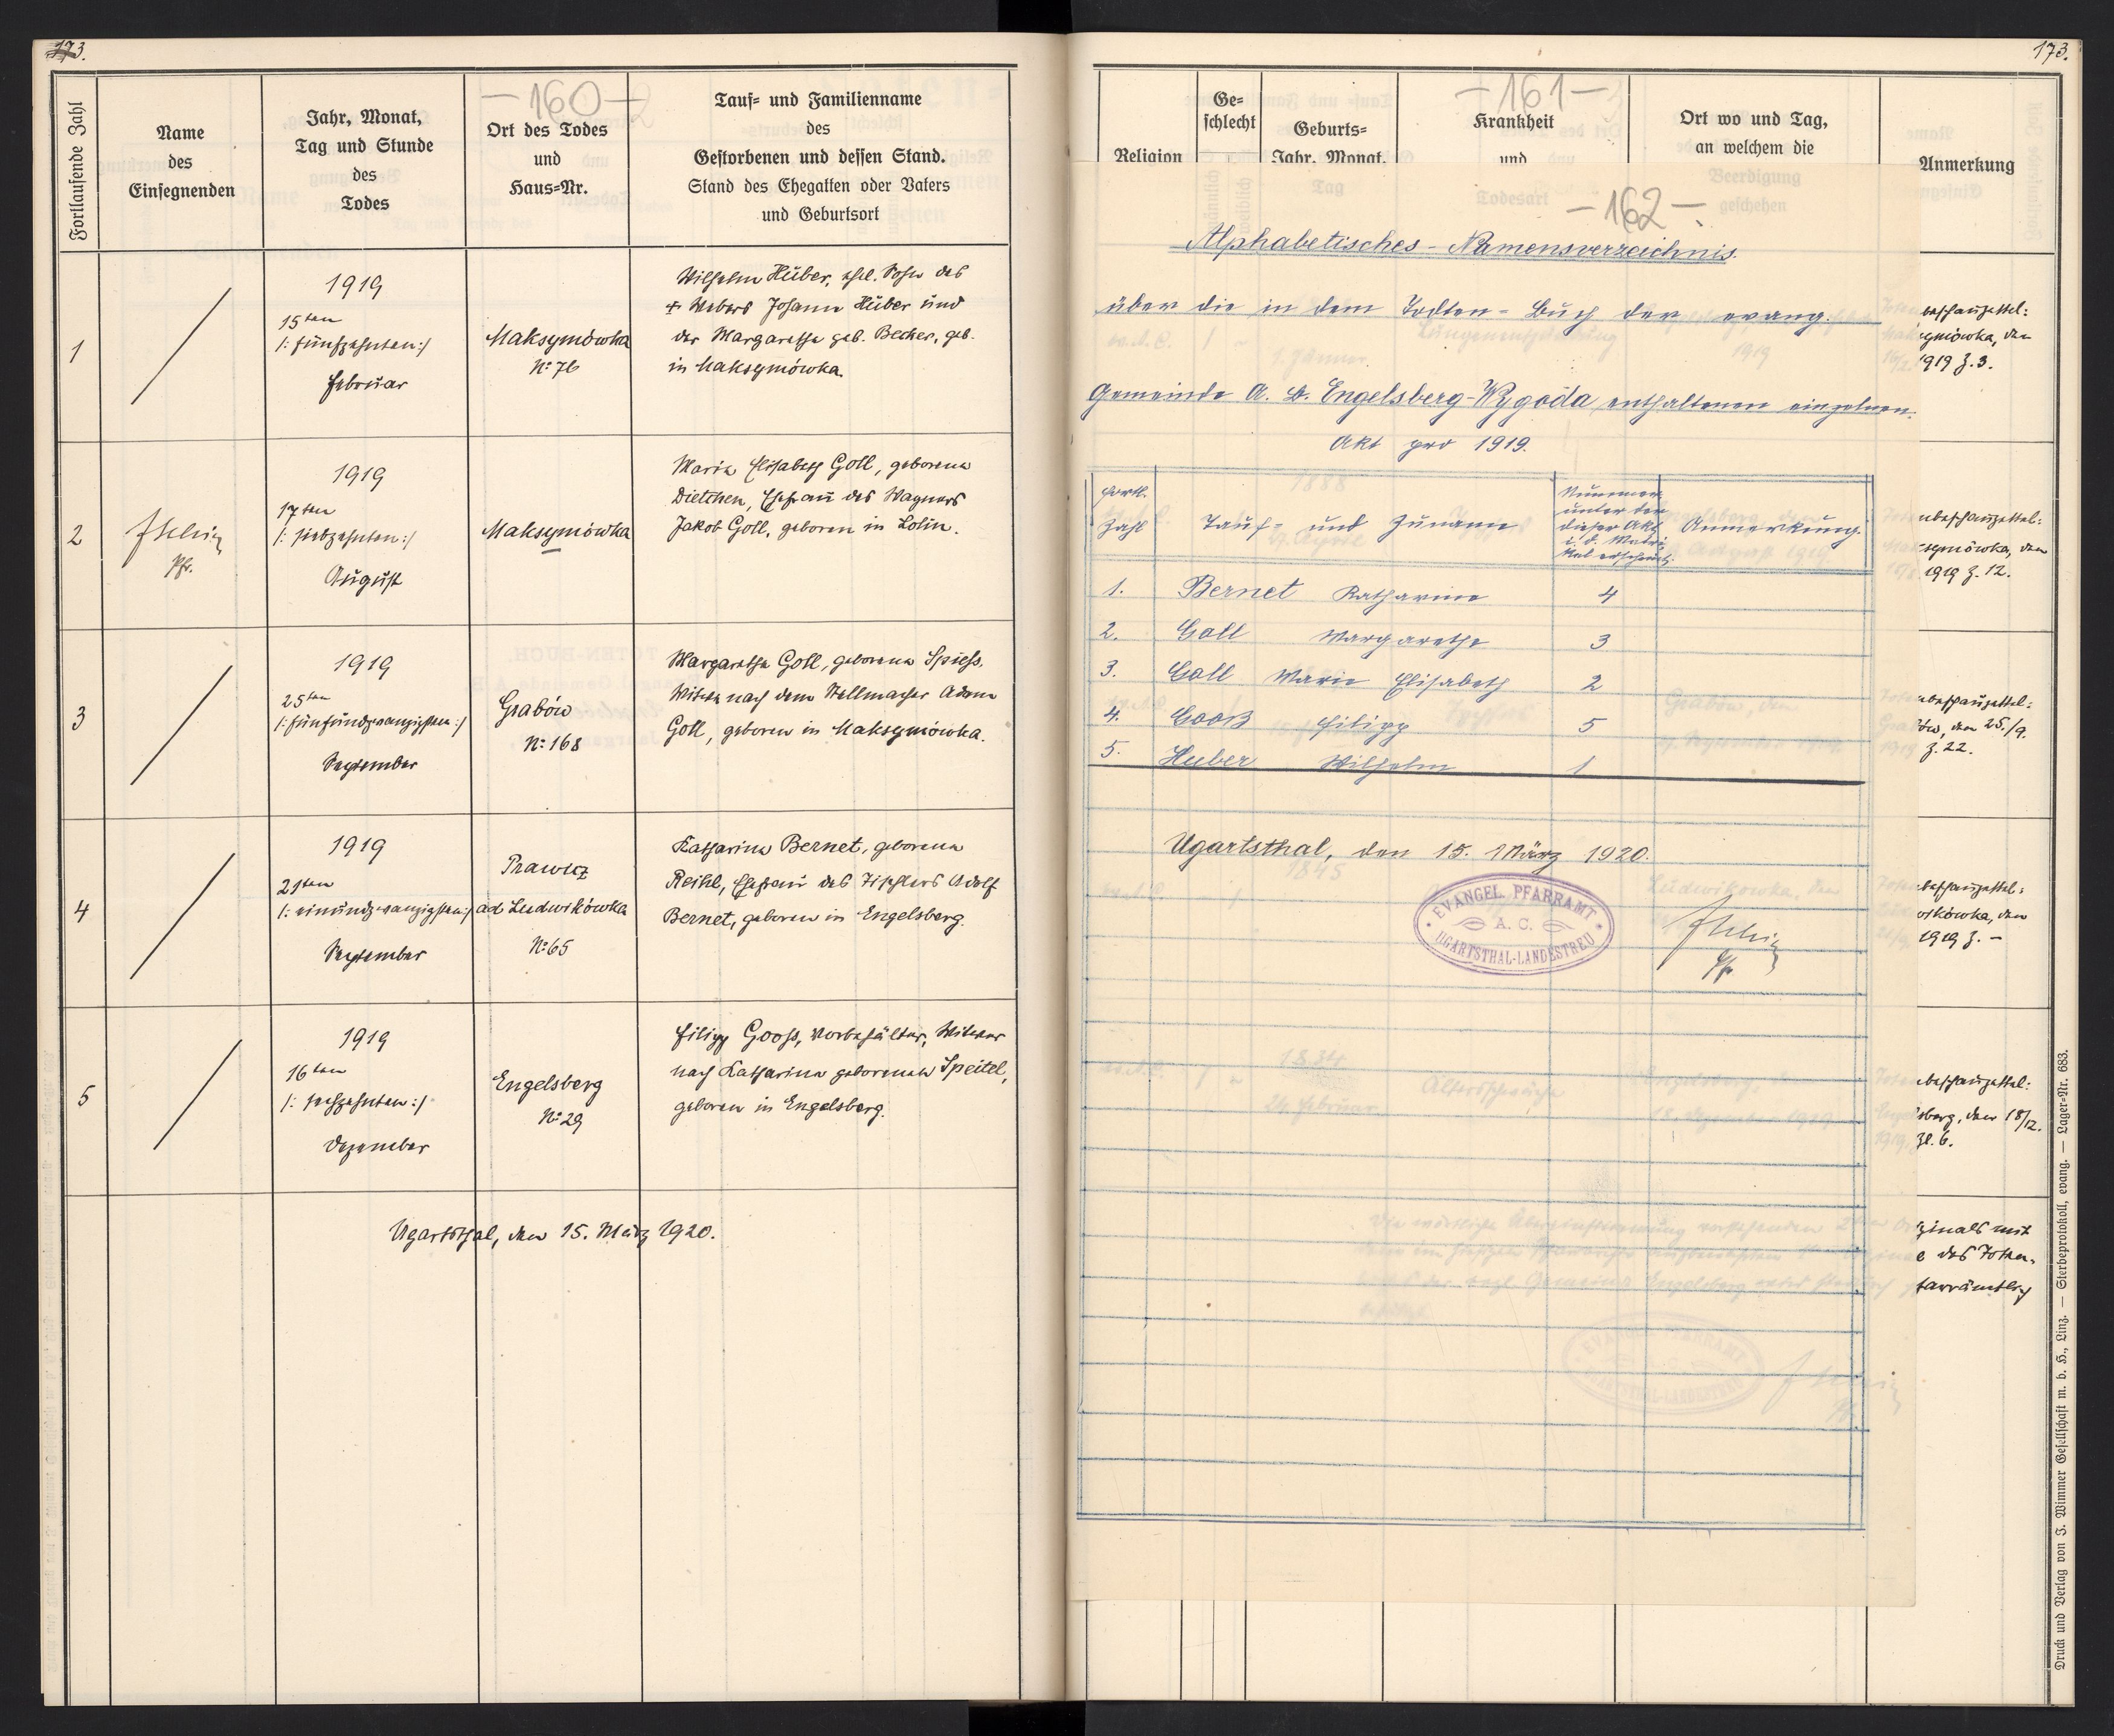 173.
— 160 —
Fortlaufende Zahl
Name
des
Einsegnenden
Jahr, Monat,
Tag und Stunde
des
Todes
Ort des Todes
und
Haus=Nr.
Tauf= und Familienname
des
Gestorbenen und dessen Stand.
Stand des Ehegatten oder Vaters
und Geburtsort
1
1919
15ten
/: fünfzehnten :/
Februar
Maksymówka
No 76
Wilhelm Huber, ehel. Sohn des
+ Webers Johann Huber und
der Margarethe geb. Becher, geb.
in Maksymówka.
2
Pfr.
1919
17ten
/: siebzehnten :/
August
Maksymówka
Maria Elisabeth Goll, geborene
Dietchen, Ehefrau des Wagners
Jakob Goll, geboren in Dolin.
3
1919
25ten
/: fünfundzwanzigsten :/
September
Grabów
No 168
Margarethe Goll, geborene Spiess,
Witwe nach dem Stellmacher Adam
Goll, geboren in Maksymówka.
4
1919
21ten
/: einundzwanzigsten :/
September
ad Ludwikówka
No 65
Katharina Bernet, geborene
Reikl, Ehefrau des Tischlers Adolf
Bernet, geboren in Engelsberg.
5
1919
16ten
/: sechzehnten :/
Dezember
Engelsberg
No 29
Filipp Gooss, Vorbehälter, Witwer
nach Katharina geborenen Speitel,
geboren in Engelsberg.
Ugartsthal, den 15. März 1920.
173.
— 161 —
Religion
Ge=
schlecht
Geburts=
Jahr, Monat,
Krankheit
und
Ort wo und Tag,
an welchem die
Anmerkung
— 162 —
Alphabetisches - Namensverzeichnis
über die in dem Todten = Buch der evang.
Gemeinde A. B. Engelsberg-Wygoda enthaltenen einzelnen
Akt pro 1919.
Fortl.
Zahl
Tauf= und Zuname
Nummer
unter der
dieser Akt
i. d. Matri
kel erscheint.
Anmerkung.
1. Bernet Katharina 4
2. Goll Margarethe 3
3. Goll Marie Elisabeth 2
4. Gooß Filipp 5
5. Huber Wilhelm 1
Ugartsthal, den 15. März 1920.
EVANGEL. PFARRAMT
A. C.
UGARTSTHAL-LANDESTREU
Pfr.
beschauzettel:
ymówka, den
1919 Z. 3.
nbeschauzettel:
symówka, den
1919 Z. 12.
nbeschauzettel:
ów, den 25./9.
Z. 22.
beschauzettel:
ikówka, den
1919 Z. –
beschauzettel:
sberg, den 18/12.
Zl. 6.
ginals mit
e des Toten-
farrämtlich
Druck und Verlag von J. Wimmer Gesellschaft m. b. H., Linz. — Sterbeprotokoll, evang. — Lager=Nr. 683.